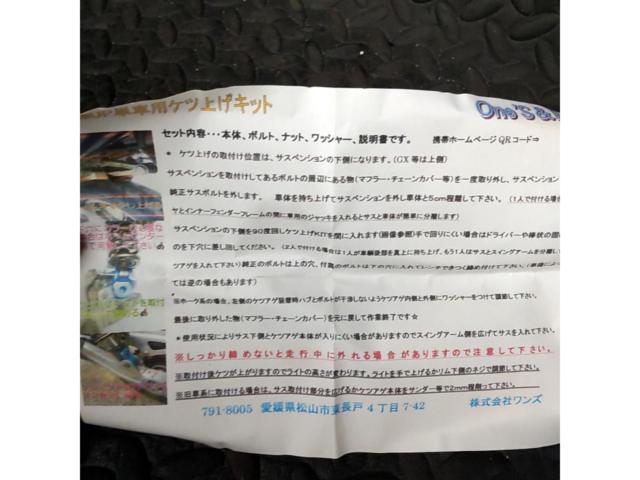 車用ケツ上げキット One'S &
セット内容・・・本体、ボルト、ナット、ワッシャー、説明書です。 携帯ホームページQRコード⇒
* ケツ上げの取付け位置は、サスペンションの下側になります。(GX等は上側)
サスペンションを取付けしてあるボルトの周辺にある物(マフラー・チェーンカバー等)を一度取り外し、サスペンション
純正サスボルトを外します。 車体を持ち上げてサスペンションを外し車体と5cm程離して下さい。 (1人で付ける場合
ヤとインナーフェンダーフレームの間に車用のジャッキを入れるとサスと車体が簡単に分離します)
サスペンションの下側を90度回しケツ上げKITを間に入れます(画像参照)手で回りにくい場合はドライバーや棒状の固
の下穴に差し回してください。(2人で付ける場合は1人が車輛後部を真上に持ち上げ、もう1人はサスとスイングアームを分離し
ツアゲを入れて下さい)純正のボルトは上の穴、付属のボルトは下の穴に入れて
ては逆の場合もあります)
※ホーク系の場合、左側のケツアゲ装着時ハブとボルトが干渉しないようケツアゲ内側と外側にワッシャーをつけて調節して下さい。
最後に取り外した物(マフラー・チェーンカバー)を元に戻して作業終了です☆
* 使用状況によりサス下側とケツアゲ本体が入りにくい場合がありますのでスイングアーム側を広げてサスを入れて下さい。
※しっかり締めないと走行中に外れる場合がありますので注意して下さい。
※取付け後ケツが上がりますのでライトの高さが変わります。ライトを手で上げるかリム下側のネジで調節して下さい。
※旧車系に取付ける場合は、サス取付け部分を広げるかケツアゲ本体をサンダー等で2mm程削って下さい。
791-8005 愛媛県松山市東長戸4丁目7-42 株式会社ワンズ